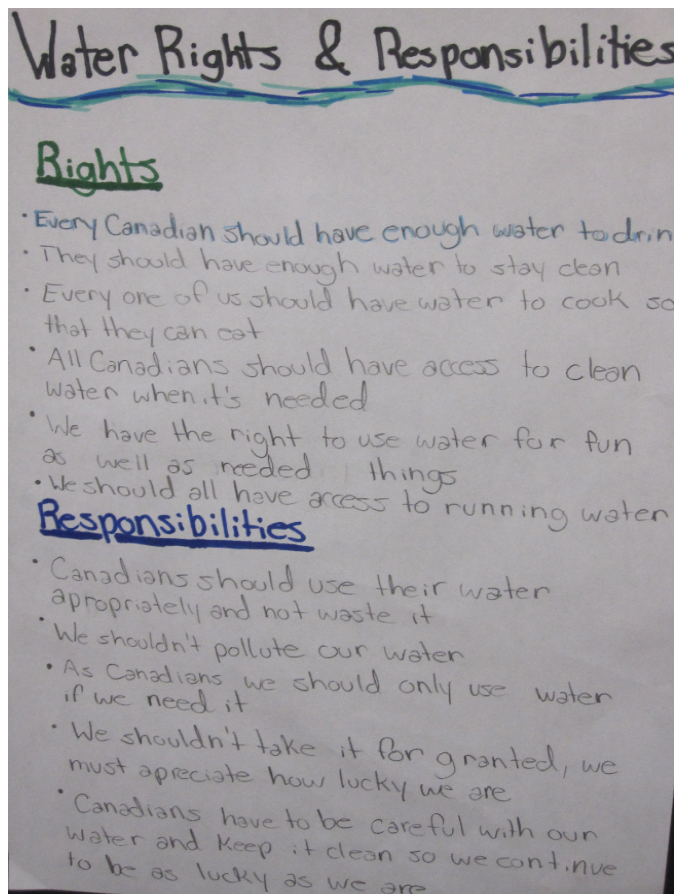 Water Rights & Responsibilities
Rights
· Every Canadian should have enough water to drin
· They should have enough water to stay clean
· Every one of us should have water to cook so
that they can eat
· All Canadians should have access to clean
water when it's needed
· We have the right to use water for fun
as well as needed things
· We should all have access to running water
Responsibilities
· Canadians should use their water
apropriately and not waste it
· We shouldn't pollute our water
· As Canadians we should only use water
if we need it
· We shouldn't take it for granted, we
must apreciate how lucky we are
· Canadians have to be careful with our
water and keep it clean so we continue
to be as lucky as we are